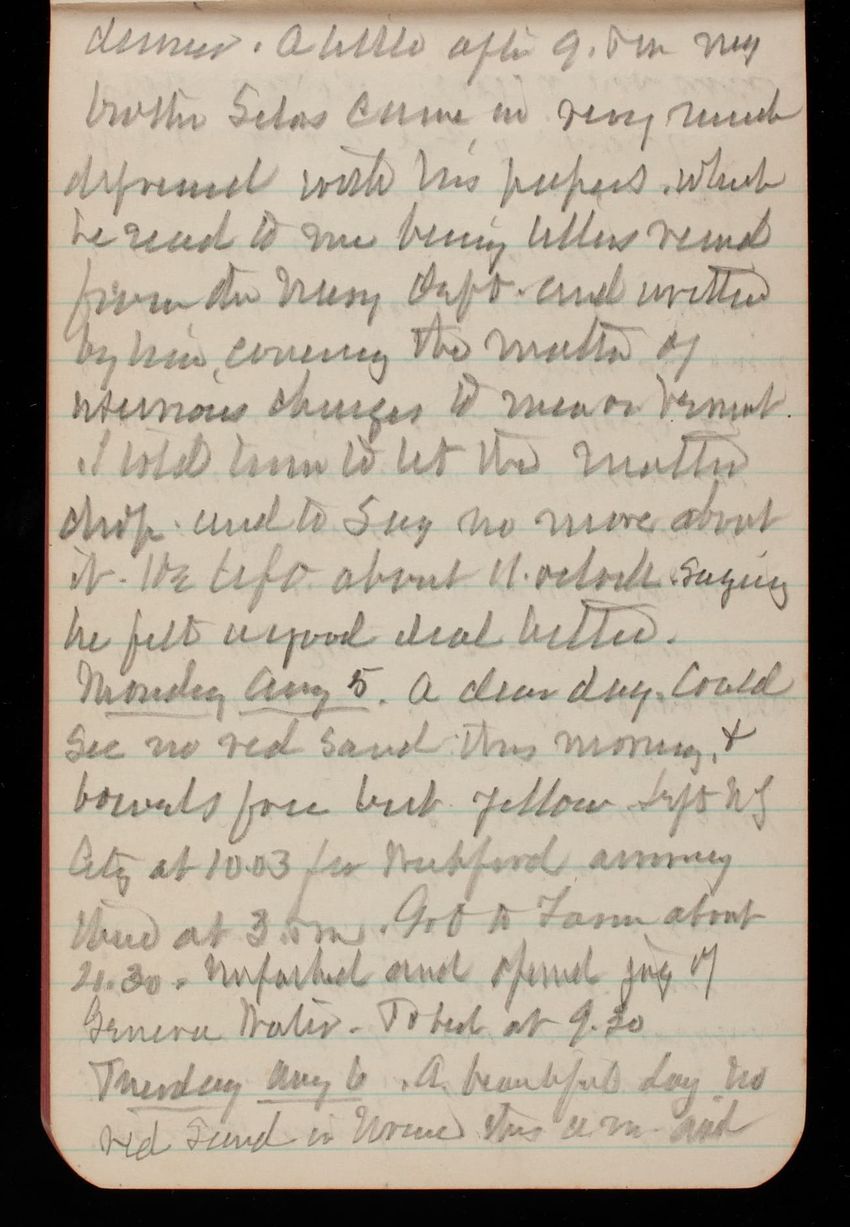 dinner. A little after 9. P m my
brother Silas came in very much
depressed with his papers. which
he read to me being letters rcvd
from the Navy Dept. and written
by him, covering the matter of
charges to
I told him to let the matter
drop. and to say no more about
it. He left about 11. oclock saying
he felt a good deal better.
Monday Aug 5. A clear day. Could
see no red sand this morning, &
bowels free but yellow Left NY
City at 10.03 for arriving
there at 3. P m. Got to Farm about
Unpacked and opened jug of
Geneva Water. To bed at 9.30
Tuesday Aug 6. A beautiful day no
red sand in Urine this a m. and